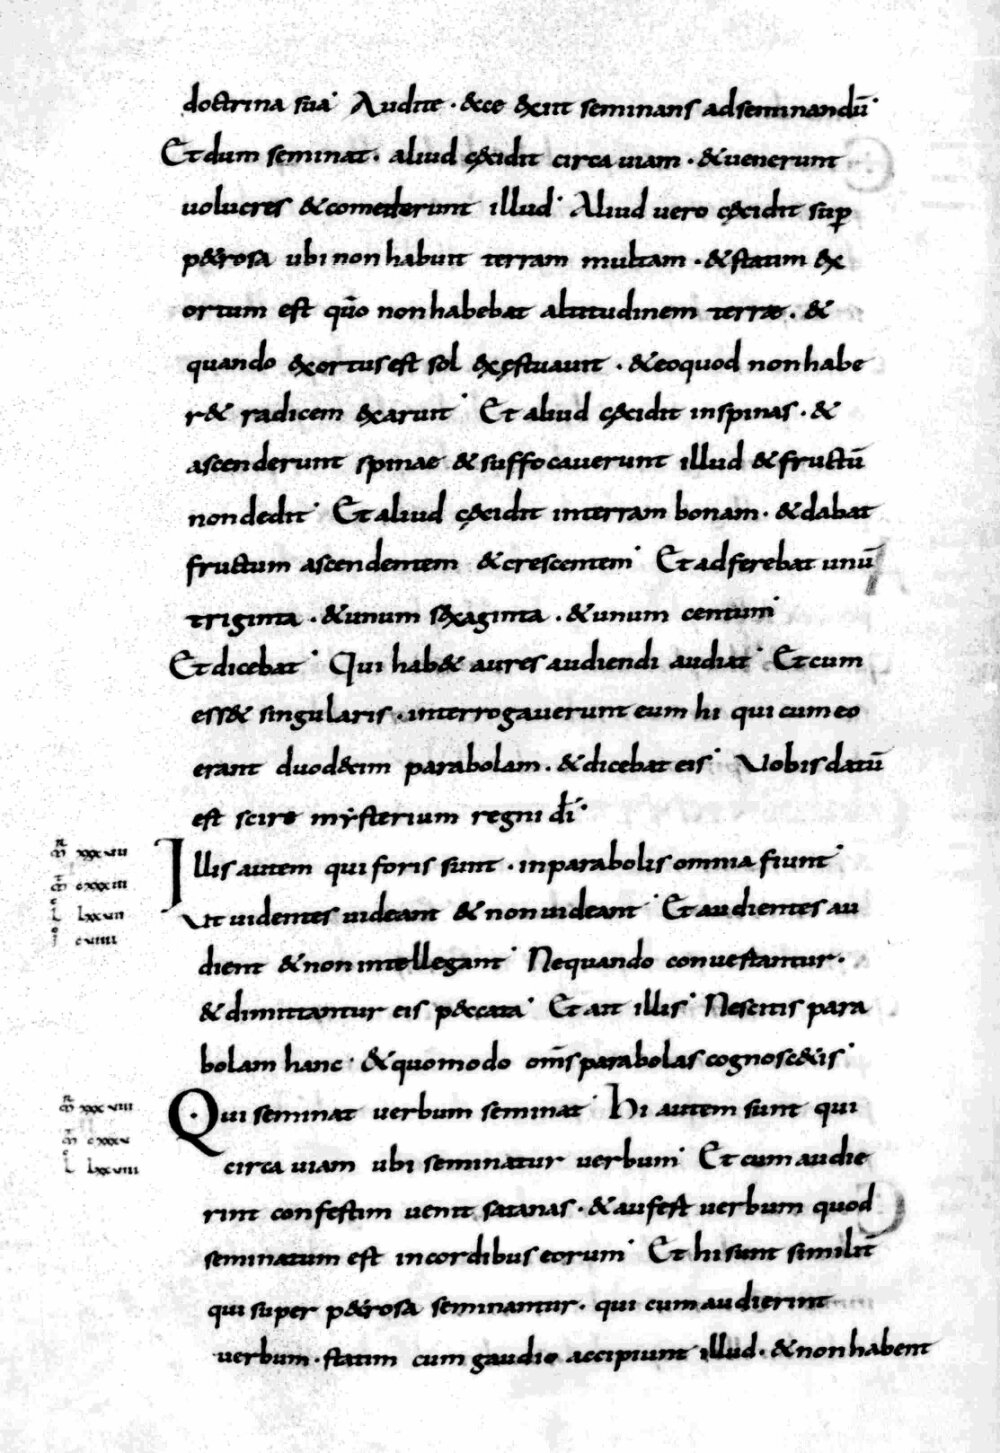 doctrina sua· Audite · &ce exiit seminans adseminandū·
Et dum seminat · aliud cęcidit circa uiam · &uenerunt
uolucres &comederunt illud· Aliud uero cęcidit sup̄
p&rosa ubi non habuit terram multam · &statim ex
ortum est qūo nonhabebat altitudinem terrae · &
quando exortus est sol exęstuauit · &eoquod nonhabe
r& radicem exaruit· Et aliud cęcidit inspinas · &
ascenderunt spinae &suffocauerunt illud &fructū
nondedit· Et aliud cęcidit interram bonam · &dabat
fructum ascendentem &crescentem· Et adferebat unū
triginta · &unum sexaginta · &unum centum·
Et dicebat· Qui hab& aures audiendi audiat· Et cum
ess& singularis · interrogauerunt eum hi qui cum eo
erant duodecim parabolam · &dicebat eis· Uobis datū
est scire mẏsterium regni dī·
Illis autem qui foris sunt · inparabolis omnia fiunt·
Ut uidentes uideant &nonuideant· Et audientes au
dient &nonintellegant· Nequando conuertantur·
&dimittantur eis peccata· Et ait illis· Nescitis para
bolam hanc· &quomodo om̄s parabolas cognosc&is·
Qui seminat uerbum seminat· Hi autem sunt qui
circa uiam ubi seminatur uerbum· Et cum audie
rint confestim uenit satanas · &aufert uerbum quod
seminatum est incordibus eorum· Et hi sunt similit̄
qui super p&rosa seminantur · qui cum audierint
uerbum · statim cum gaudio accipiunt illud · &nonhabent